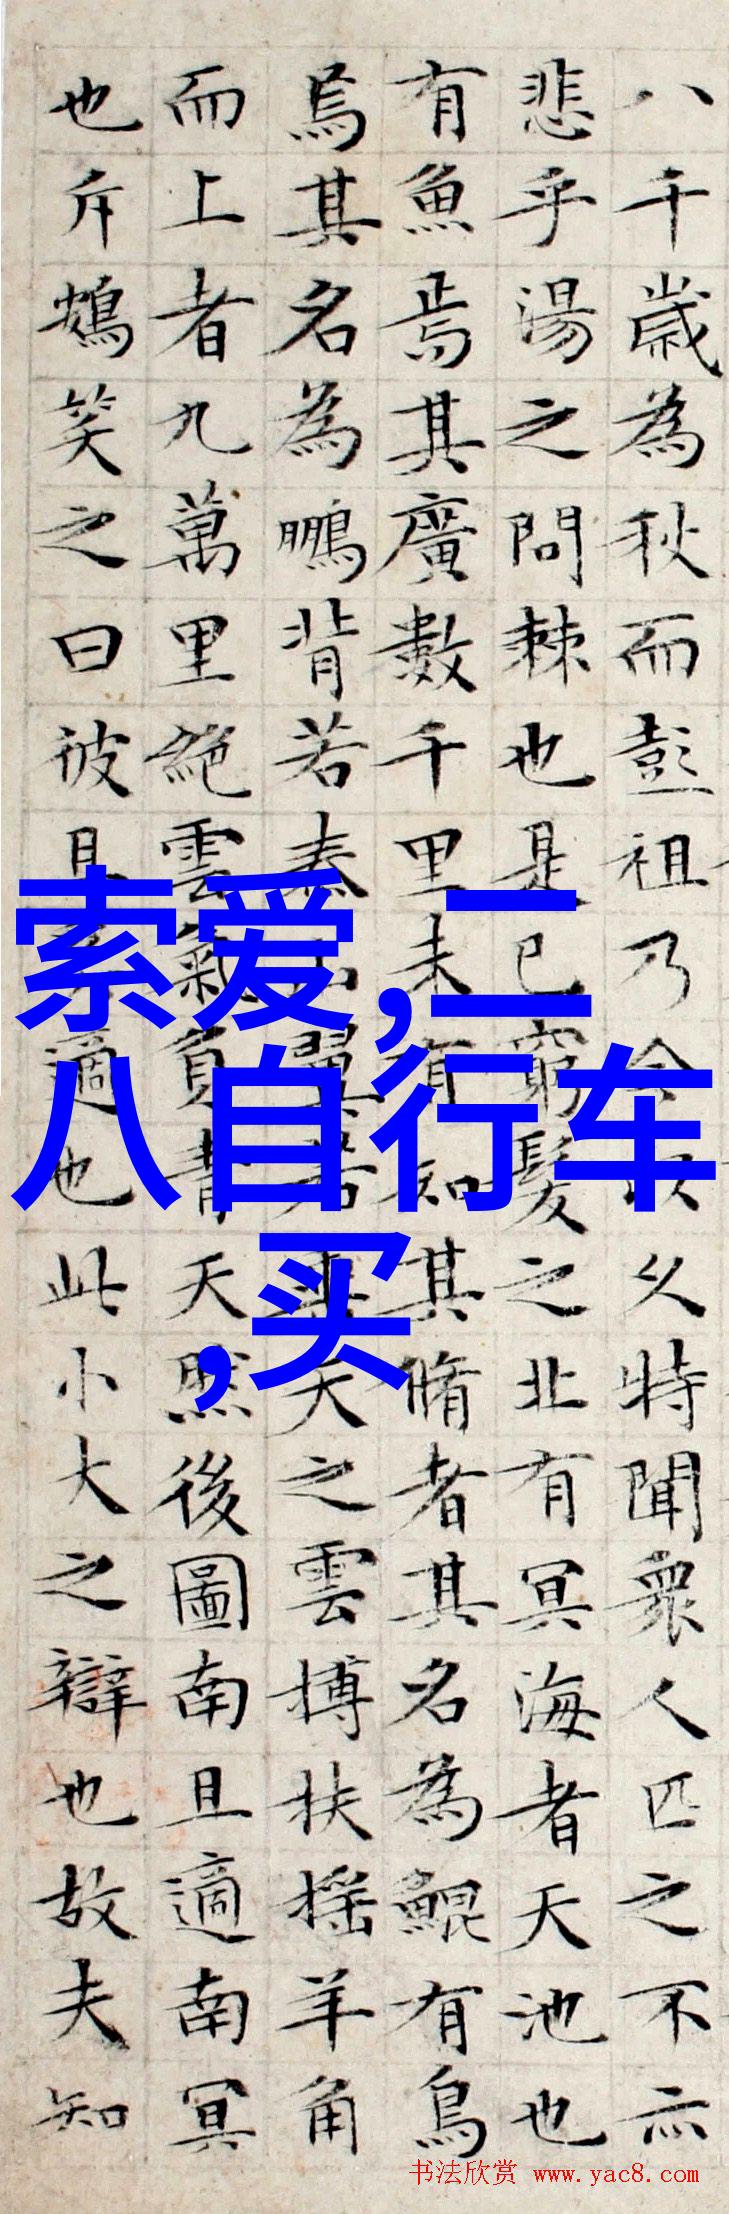 八千歲為秋而彭祖乃今以久特聞衆人匹之不亦
悲乎湯之問棘也是已窮髮之北有冥海者天池也
有魚焉其廣數千里未有知其脩者其名為鯤有鳥
焉其名為鵬背若泰山翼若垂天之雲搏扶搖羊角
而上者九萬里絕雲氣負青天然後圖南且適南冥
也斥鴳笑之曰彼且適也此小大之辯也故夫知
索爱,二
八自行车
,买
书法欣赏 www.yac8.com